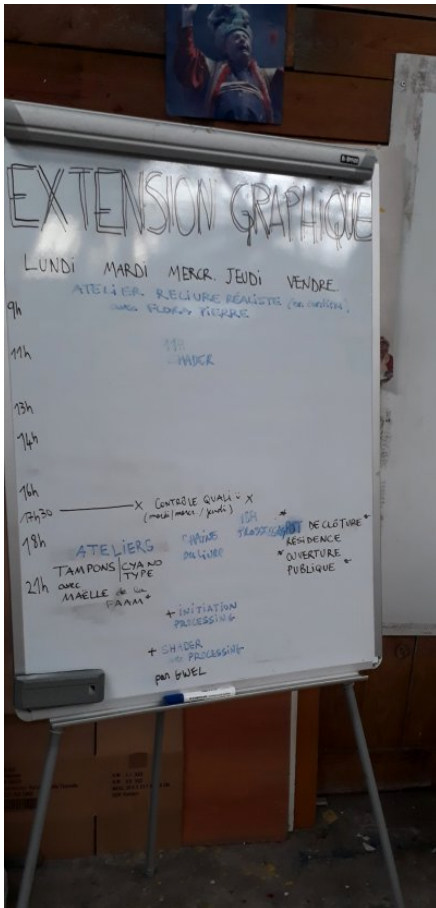 EXTENSION GRAPHIQUE
LUNDI MARDI MERCR. JEUDI VENDRE.
ATELIER RELIURE RÉALISTE
avec PIERRE
9h
11h
11h
SHADER
13h
14h
16h
17h30 X CONTRÔLE QUALI X
(mardi/mercr./jeudi)
18h
ATELIERS
TAMPONS | CYANO
TYPE
avec
MAËLLE de la
FAAM*
21h
CHAÎNE
DU LIVRE
* DE CLÔTURE *
RÉSIDENCE
* OUVERTURE
PUBLIQUE *
+ INITIATION
PROCESSING
+ SHADER
PROCESSING
par GWEL